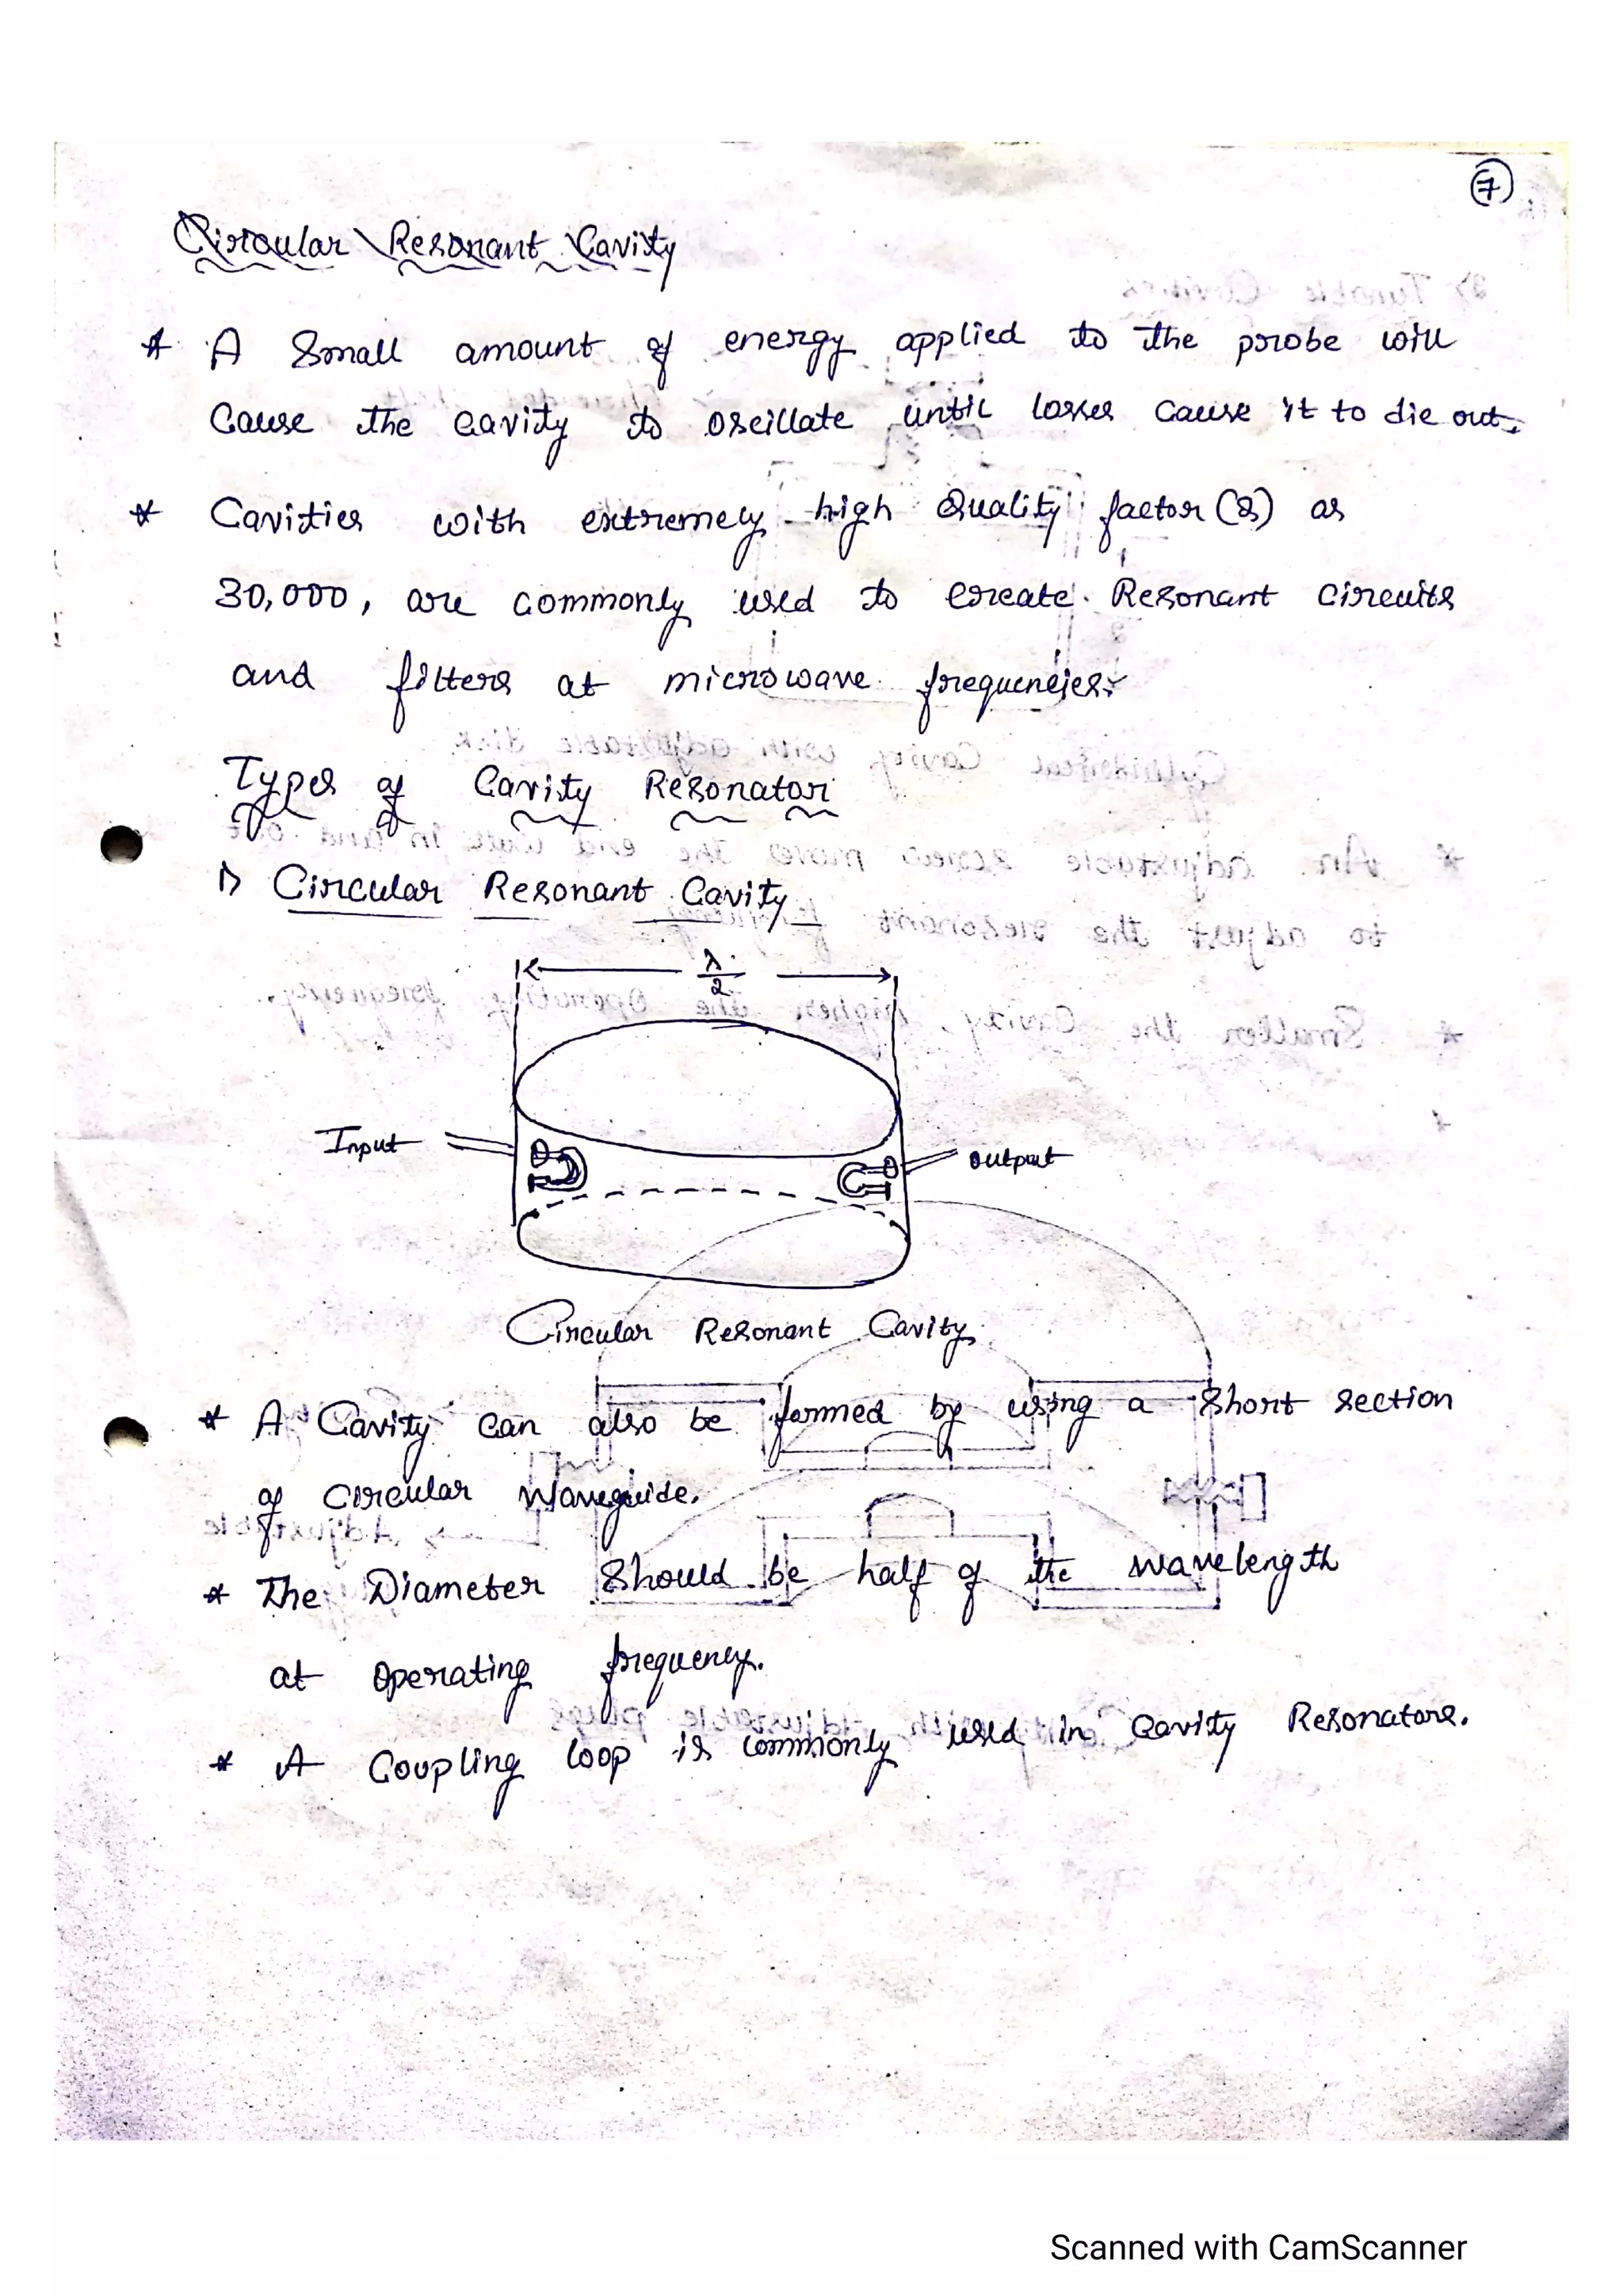 7
Circular Resonant Cavity
* A Small amount of energy applied to the probe will
Cause the Cavity to oscillate until losses cause it to die out.
* Cavities with extremely high Quality factor (Q) as
30,000, are commonly used to create Resonant Circuits
and filters at microwave frequencies.
Types of Cavity Resonator
1) Circular Resonant Cavity
λ/2
Input
output
Circular Resonant Cavity
* A Cavity can also be formed by using a Short section
of circular Waveguide.
* The Diameter Should be half of the wavelength
at operating frequency.
* A Coupling loop is commonly used in Cavity Resonators.
Scanned with CamScanner